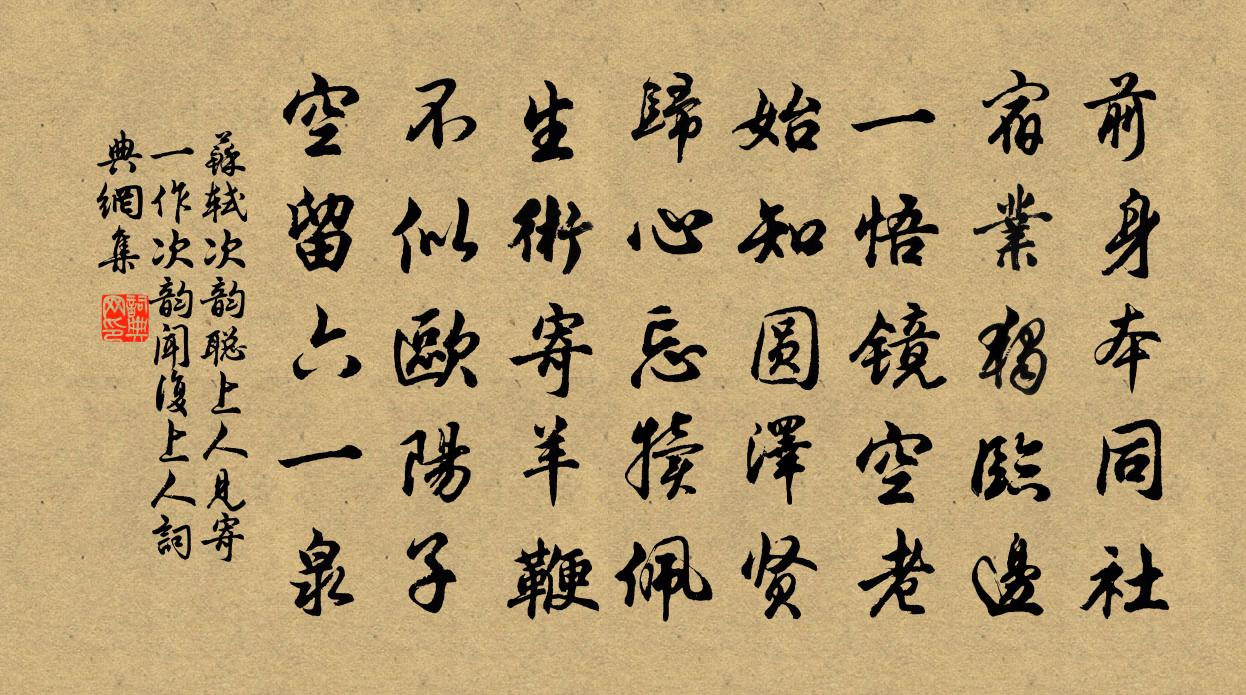 前身本同社
宿業獨臨邊
一悟鏡空老
始知圓澤贤
歸心忘犢佩
生術寄羊鞭
不似歐陽子
空留六一泉
蘇軾次韵聪上人見寄
一作次韵聞復上人詞
典網集
詞典网印